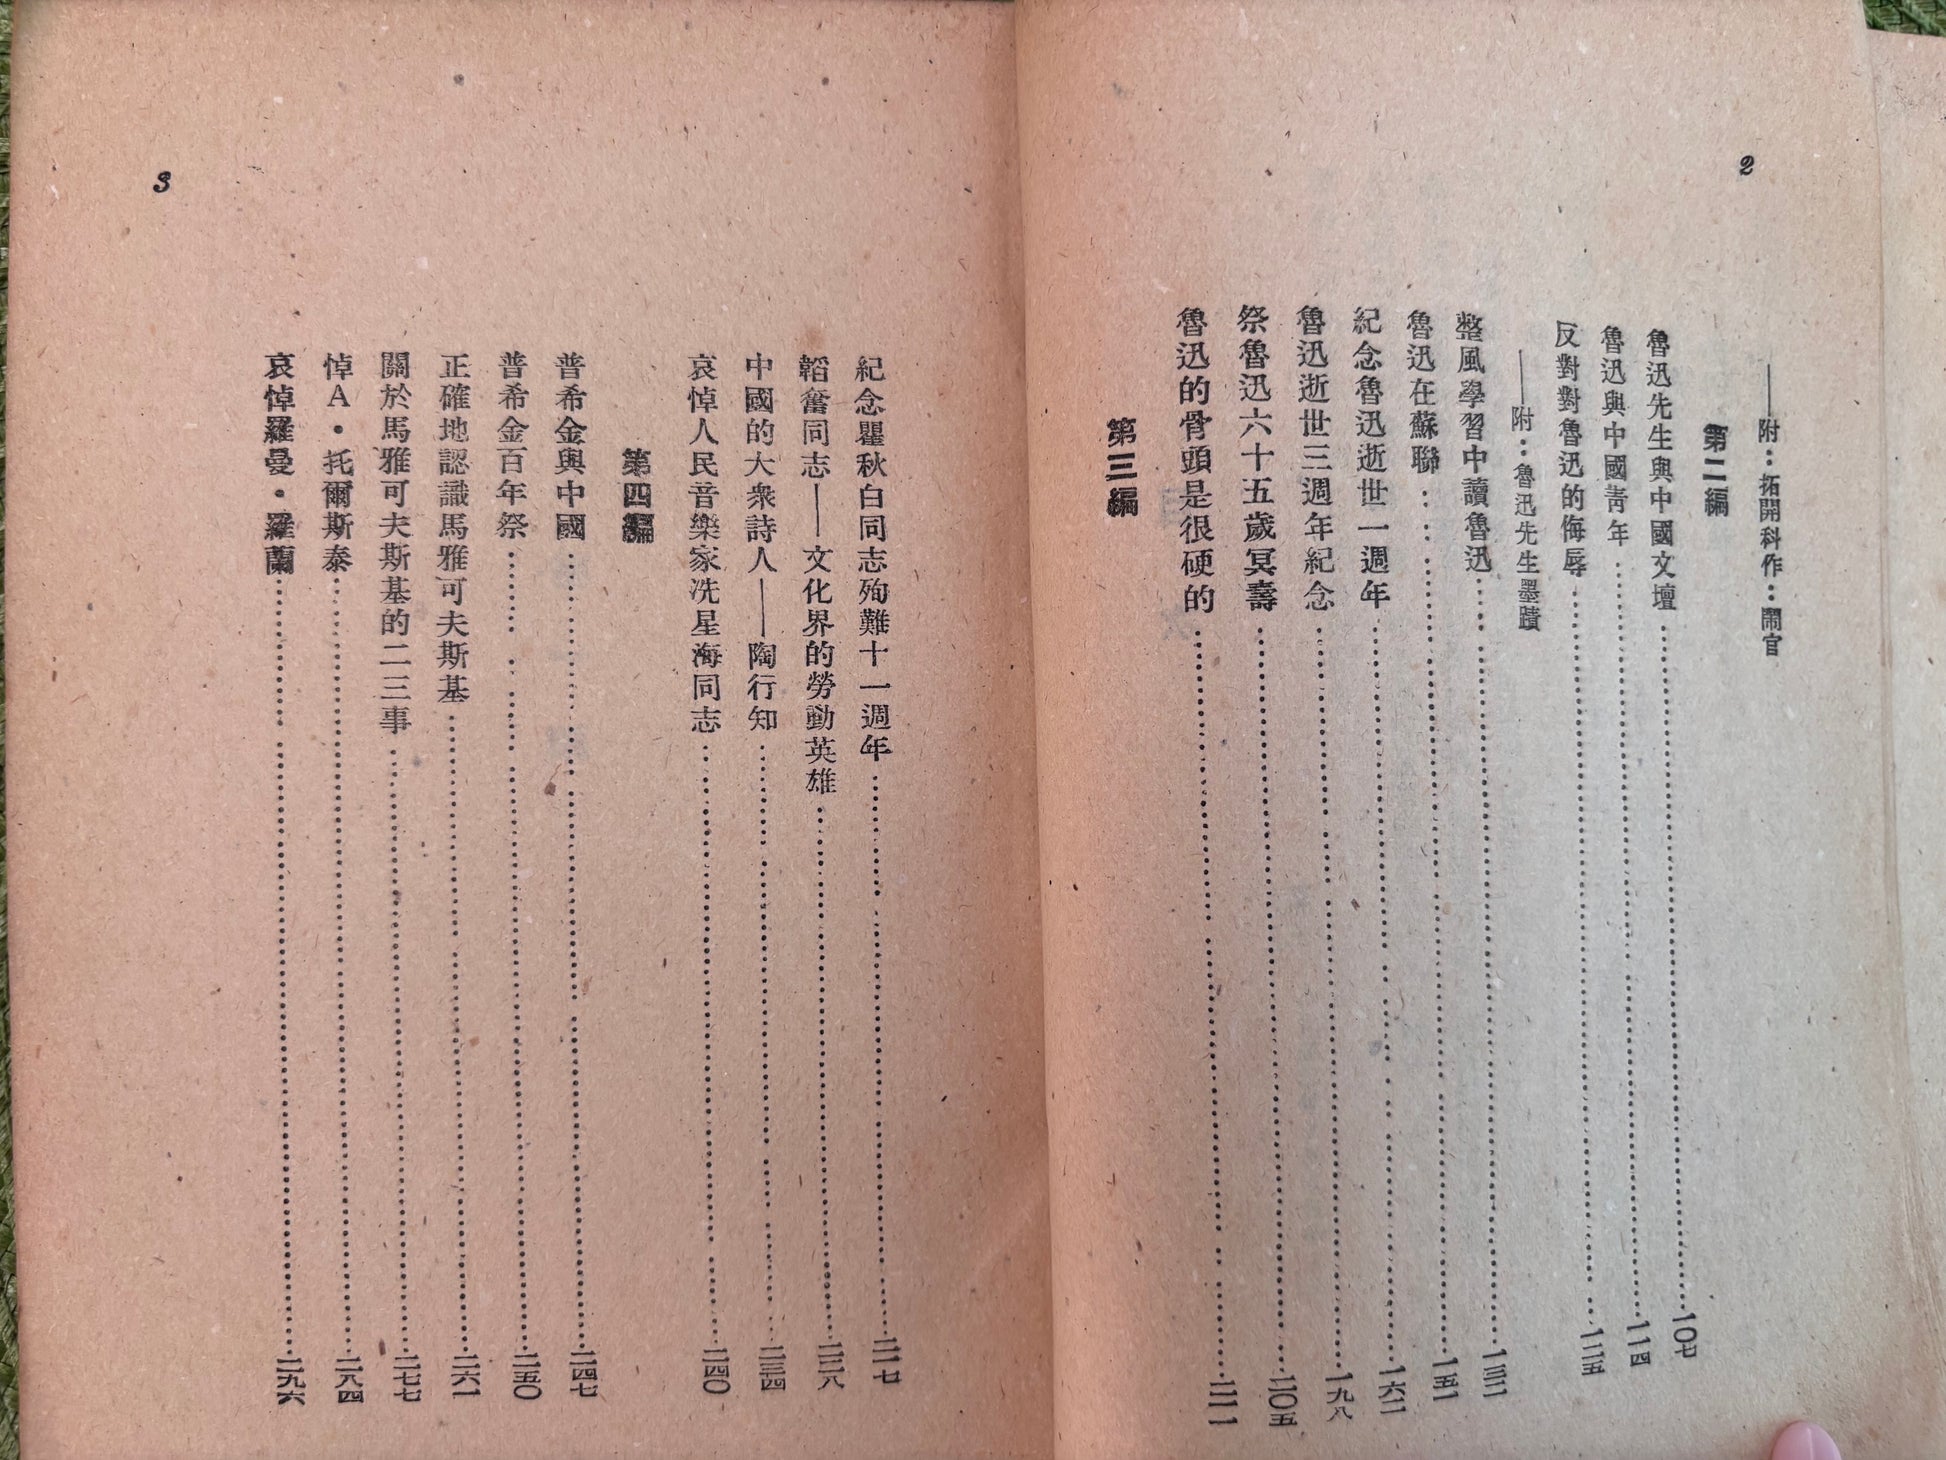 2
——附：拓開科作：鬧官
第二編
魯迅先生與中國文壇……一〇七
魯迅與中國青年……一一四
反對對魯迅的侮辱……一二五
——附：魯迅先生墨蹟
整風學習中讀魯迅……一三二
魯迅在蘇聯……一五一
紀念魯迅逝世一週年……一六二
魯迅逝世三週年紀念……一九八
祭魯迅六十五歲冥壽……二〇五
魯迅的骨頭是很硬的……二一一
第三編
紀念瞿秋白同志殉難十一週年……二一七
韜奮同志——文化界的勞動英雄……二二八
中國的大衆詩人——陶行知……二三四
哀悼人民音樂家冼星海同志……二四〇
第四編
普希金與中國……二四七
普希金百年祭……二五〇
正確地認識馬雅可夫斯基……二六一
關於馬雅可夫斯基的二三事……二七七
悼A・托爾斯泰……二八四
哀悼羅曼・羅蘭……二九六
3